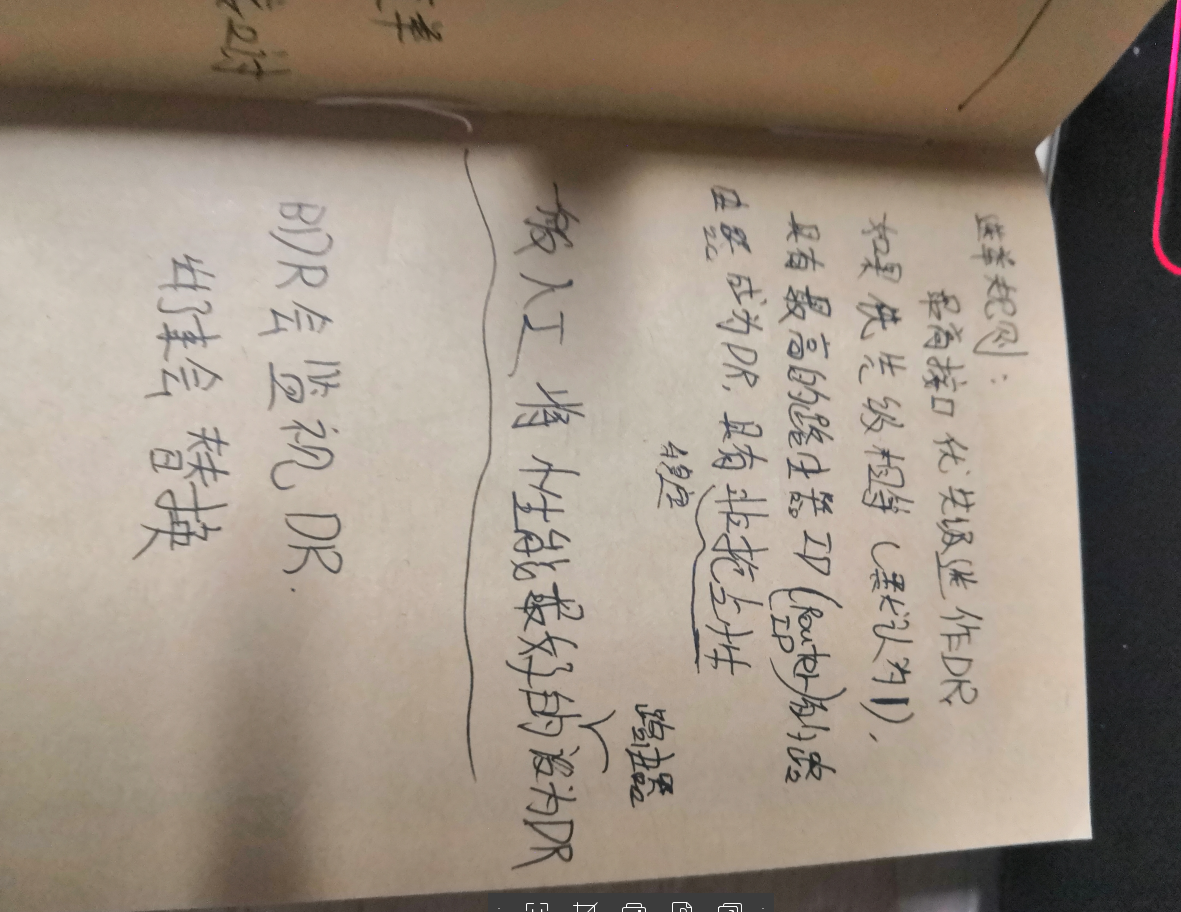 选举规则:
最高接口优先级选作DR,
如果优先级相等(默认为1),
具有最高的路由器ID(Router ID)的路
由器成为DR,具有非抢占性
稳定
路由器
一般人工将性能最好的设为DR
BDR会监视DR.
故障会替换